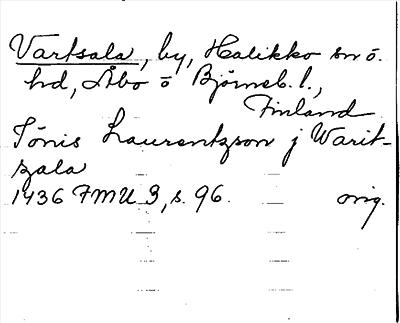 Vartsala, by, Halikko sn o.
hd, Åbo o Björneb. l.,
Finland
Jönis Laurentzson j Warit-
zala
1436 FMU 3, s. 96. orig.